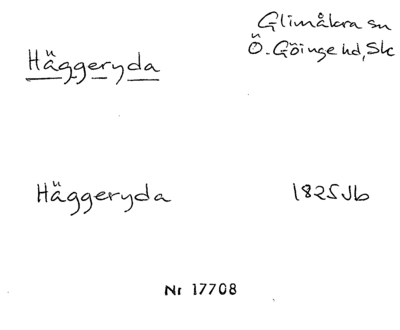 Häggeryda
Glimåkra sn
Ö. Göinge hd, Sk
Häggeryda
1825 Jb
Nr 17708